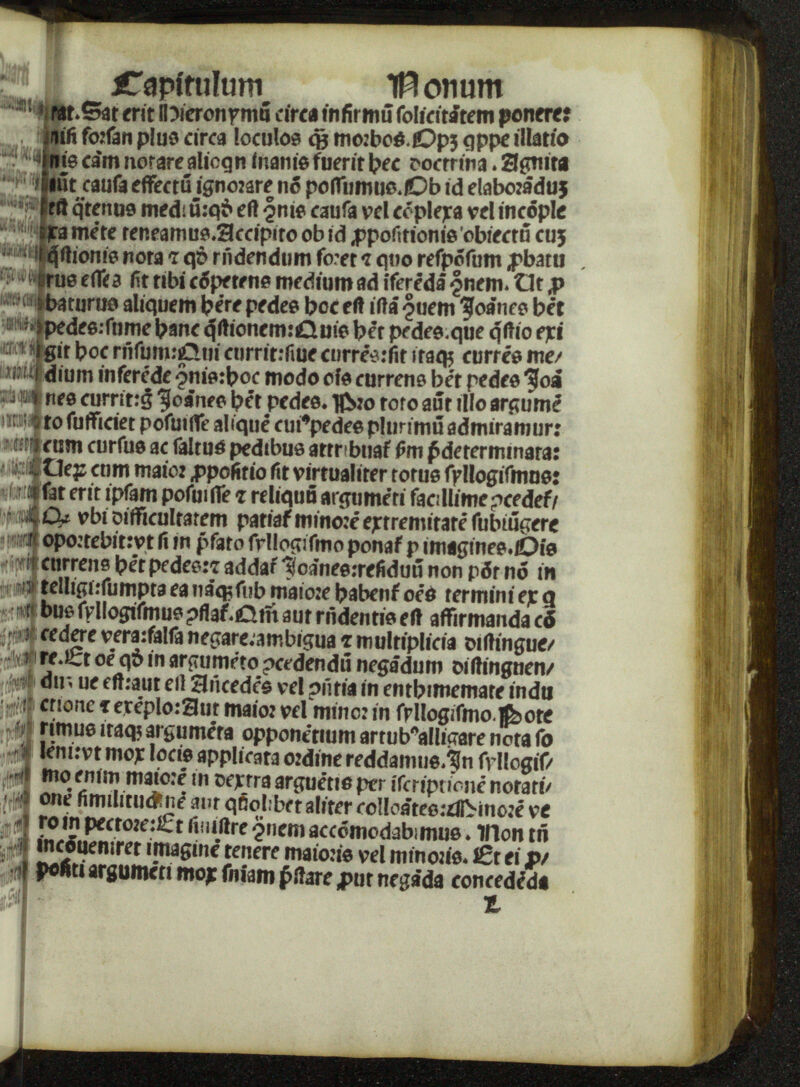 Capitulum Nonum
rat. Sat erit Hieronymũ circa infirmũ solicitãtem ponere:
nisi forsan plus circa loculos q̃ morbos. Opʒ qppe illatio
nis cãm notare alioqn inanis fuerit hec doctrina. Agnita
aũt causa effectũ ignorare nõ possumus. Ob id elaborãduʒ
est q̃tenus mediũ: qđ est ↄ̃nis causa vel cõplexa vel incõple
xa mẽte teneamus. Accipito ob id ꝓpositionis obiectũ cuʒ
q̃stionis nota ⁊ qđ rñdendum foret ⁊ quo respõsum ꝓbatu
rus essẽs sit tibi cõpetens medium ad iferẽdã ↄ̃nem. Ut ꝓ
baturus aliquem hẽre pedes hoc est istã ↄ̃uem Joãnes hẽt
pedes: sume hanc q̃stionem: Quis hẽt pedes. que q̃stio exi
git hoc rñsum: Qui currit: siue currẽs: sit itaqʒ currẽs me/
dium inferẽde ↄ̃nis: hoc modo oĩs currens hẽt pedes Joã
nes currit: g̃ Joãnes hẽt pedes. Pro toto aũt illo argumẽ
to sufficiet posuisse aliquẽ cui⁹ pedes plurimũ admiramur:
cum cursus ac saltus pedibus attribuat̃ ẞm p̃determinata:
Uerʒ cum maior ꝓpositio sit virtualiter totus syllogismus:
sat erit ipsam posuisse ⁊ reliquũ argumẽti facillime ↄcedet̃/
Qʒ vbi difficultatem patiat̃ minorẽ extremitatẽ subiũgere
oportebit: vt si in p̃fato syllogismo ponat̃ p imagines. Oĩs
currens hẽt pedes: ⁊ addat̃ Joãnes: residuũ non põt nõ in
telligi: sumpta ea nãqʒ sub maiore habent̃ oẽs termini ex q
bus syllogismus ↄ̃flat̃. Qm̃ aut rñdentis est affirmanda cõ
cedere vera: falsa negare: ambigua ⁊ multiplicia distingue/
re. Et oẽ qđ in argumẽto ↄcedendũ negãdum distinguen/
dũ ue est: aut est Añcedẽs vel ↄñtia in enthimemate indu
ctione ⁊ exẽplo: Aut maior vel minor in syllogismo. Pote
rimus itaqʒ argumẽta opponẽtium artub⁹ alligare nota so
leni: vt mox locis applicata ordine reddamus. In syllogis/
mo enim maiorẽ in dextra arguẽtis per iscriptionẽ notati/
onẽ similitudinẽ aut qñolibet aliter colloãtes: Minorẽ ve
ro in pectore: Et sinistre ↄ̃nem accõmodabimus. Non tñ
incõueniret imaginẽ tenere maioris vel minoris. Et ei ꝓ/
positi argumẽti mox sniam p̃stare ꝓut negãda concedẽda
L